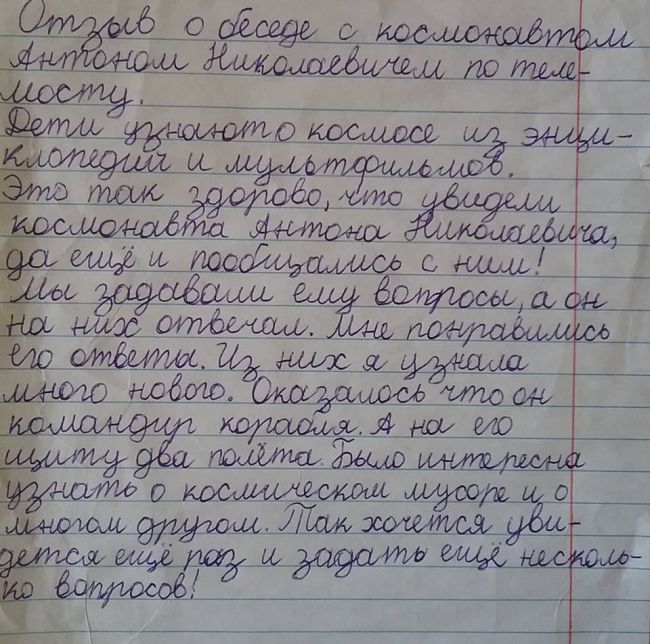 Отзыв о беседе с космонавтом
Антоном Николаевичем по теле-
мосту.
Дети узнают о космосе из энци-
клопедий и мультфильмов.
Это так здорово, что увидели
космонавта Антона Николаевича,
да ещё и пообщались с ним!
Мы задавали ему вопросы, а он
на них отвечал. Мне понравились
его ответы. Из них я узнала
много нового. Оказалось что он
командир корабля. А на его
щиту два полёта. Было интересна
узнать о космическом мусоре и о
многом другом. Так хочется уви-
дется ещё раз и задать ещё несколь-
ко вопросов!